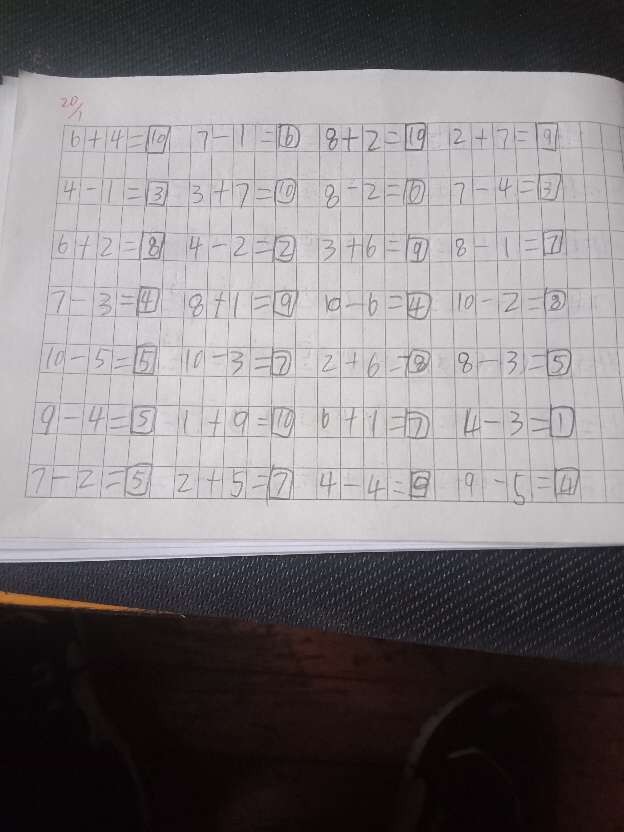 20/1
6+4=10 7-1=6 8+2=10 2+7=9
4-1=3 3+7=10 8-2=6 7-4=3
6+2=8 4-2=2 3+6=9 8-1=7
7-3=4 8+1=9 10-6=4 10-2=8
10-5=5 10-3=7 2+6=8 8-3=5
9-4=5 1+9=10 6+1=7 4-3=1
7-2=5 2+5=7 4-4=9 9-5=4